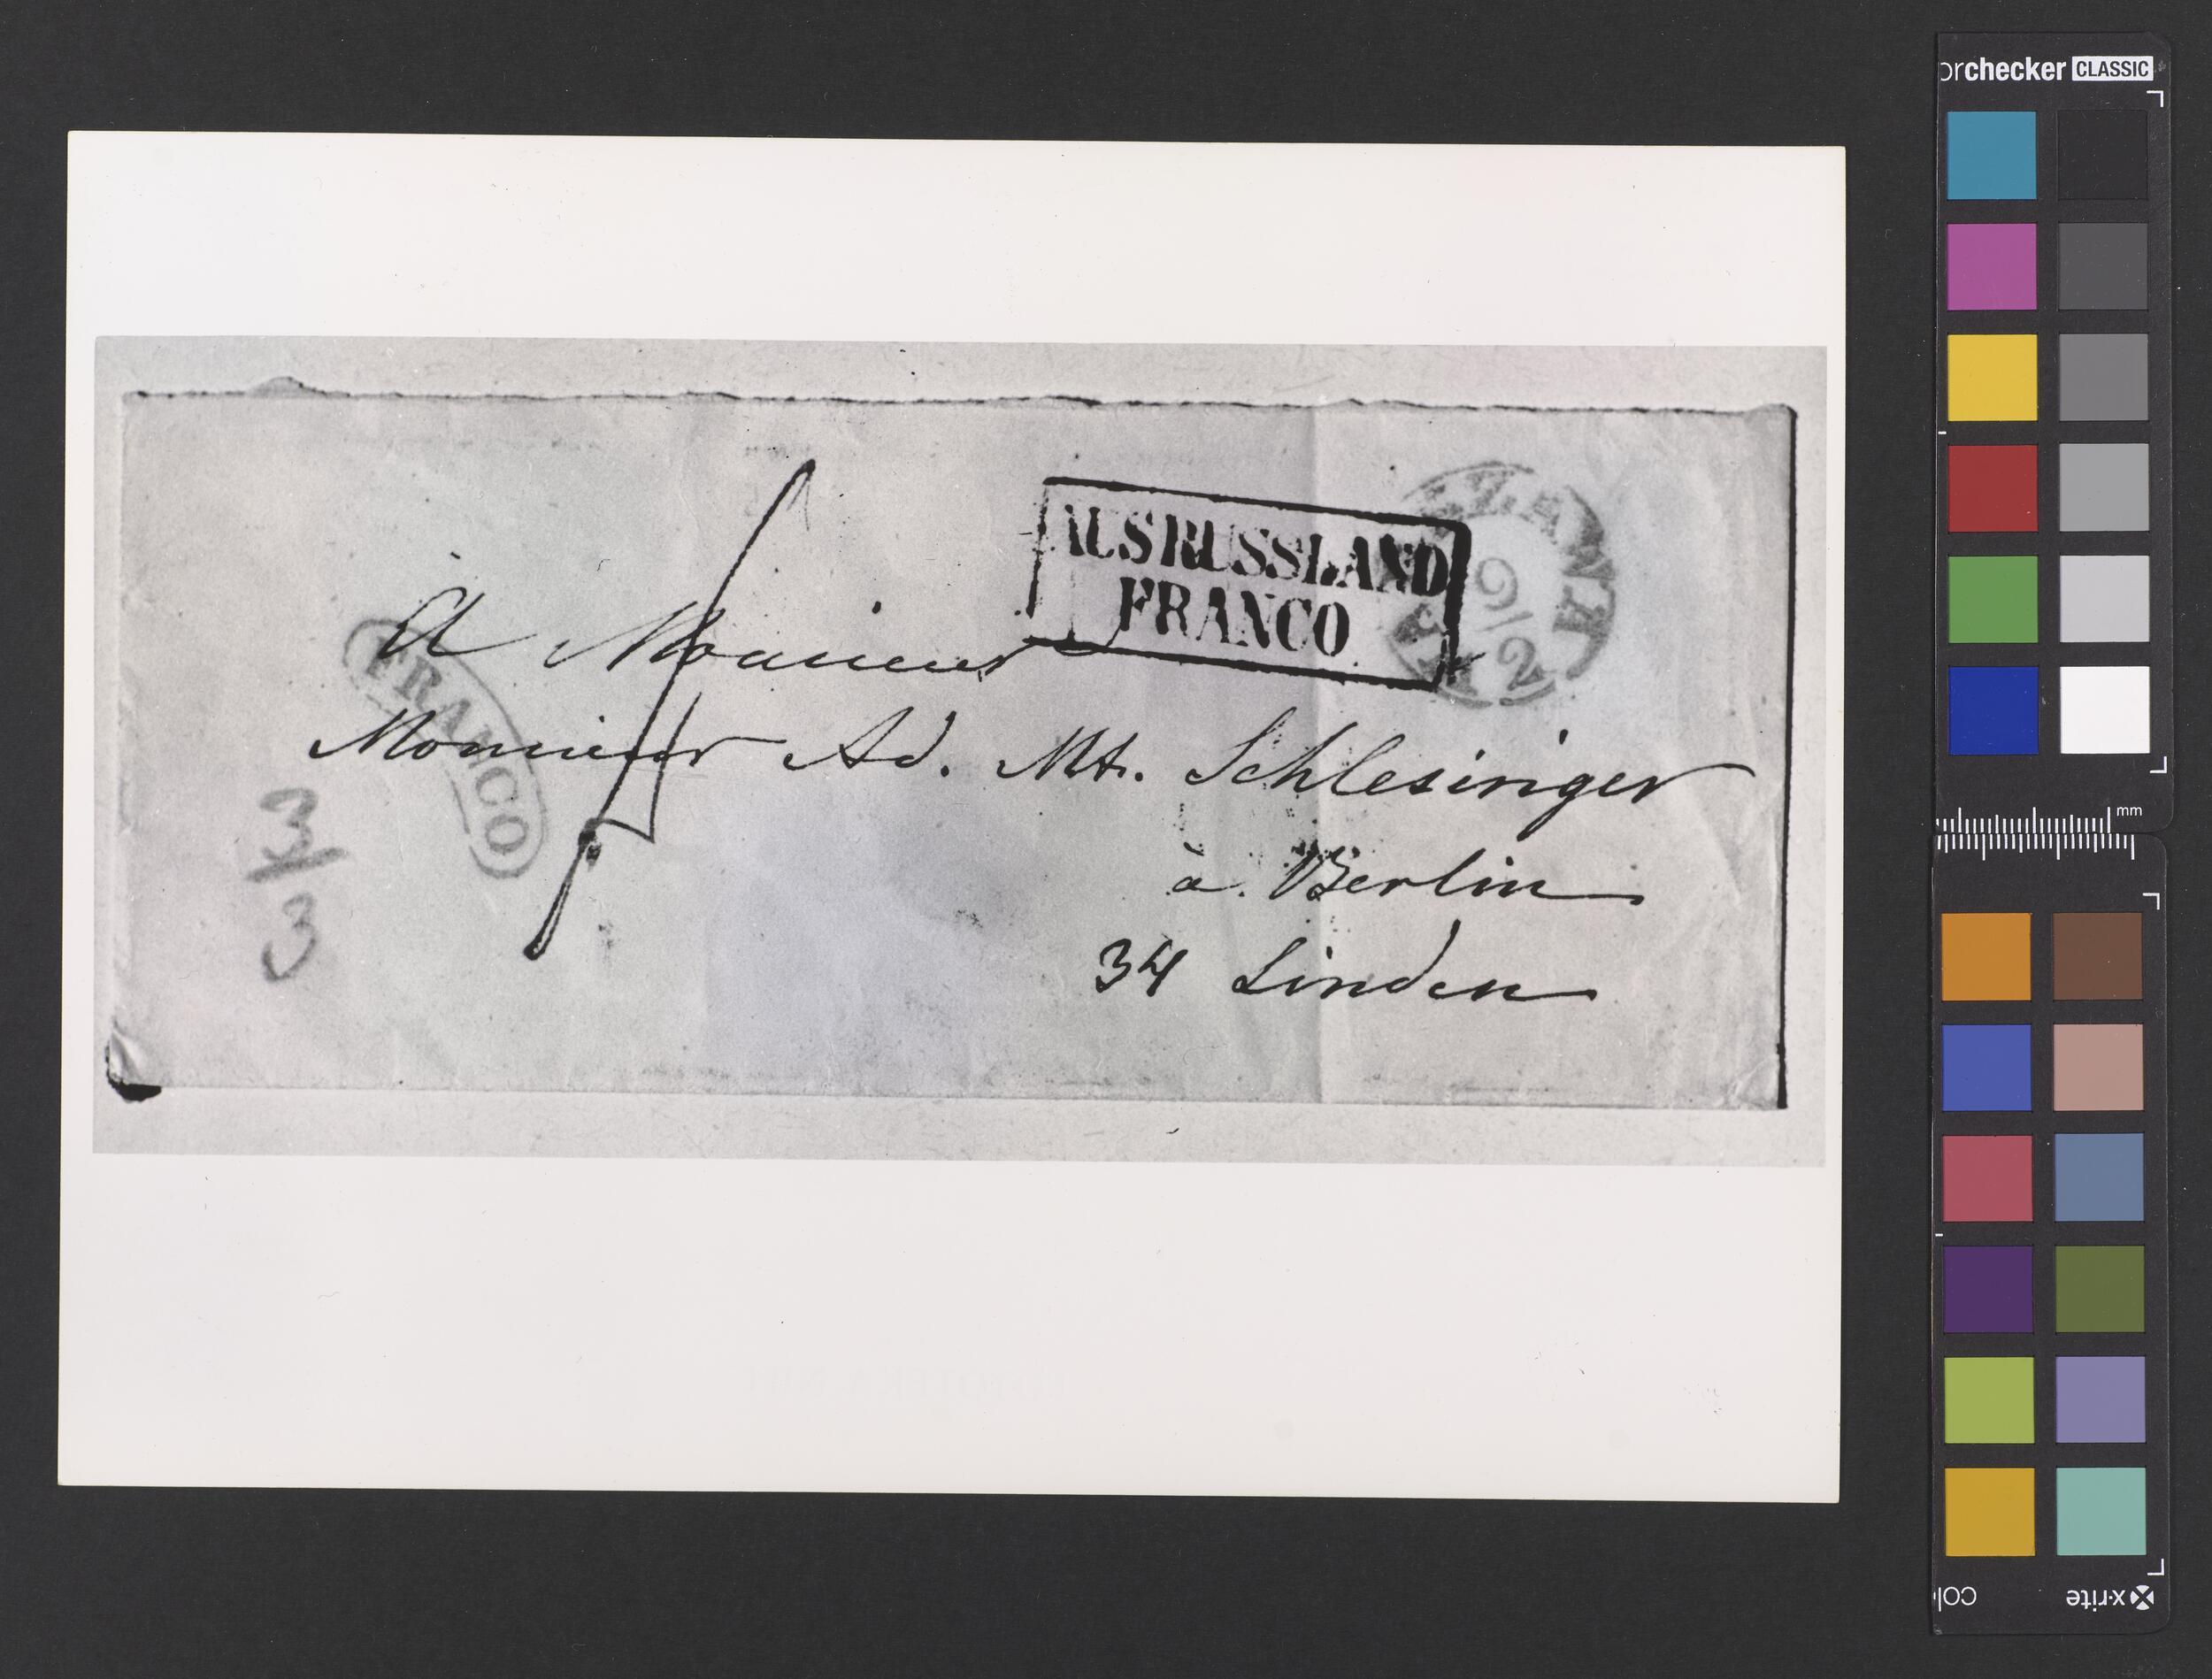 AUS RUSSLAND
FRANCO
9/2
FRANCO
A Monsieur
Monsieur Ad. Mt. Schlesinger
à Berlin
34 Linden
3/3
orchecker CLASSIC
mm
x-rite
col